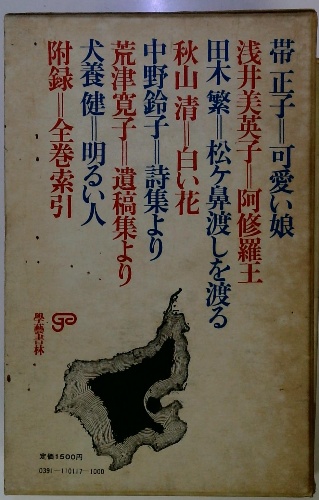 帯 正子＝可愛い娘
浅井美英子＝阿修羅王
田木 繁＝松ケ鼻渡しを渡る
秋山 清＝白い花
中野鈴子＝詩集より
荒津寛子＝遺稿集より
犬養 健＝明るい人
附録＝全巻索引
學藝書林
定価1500円
0391—110117—1000